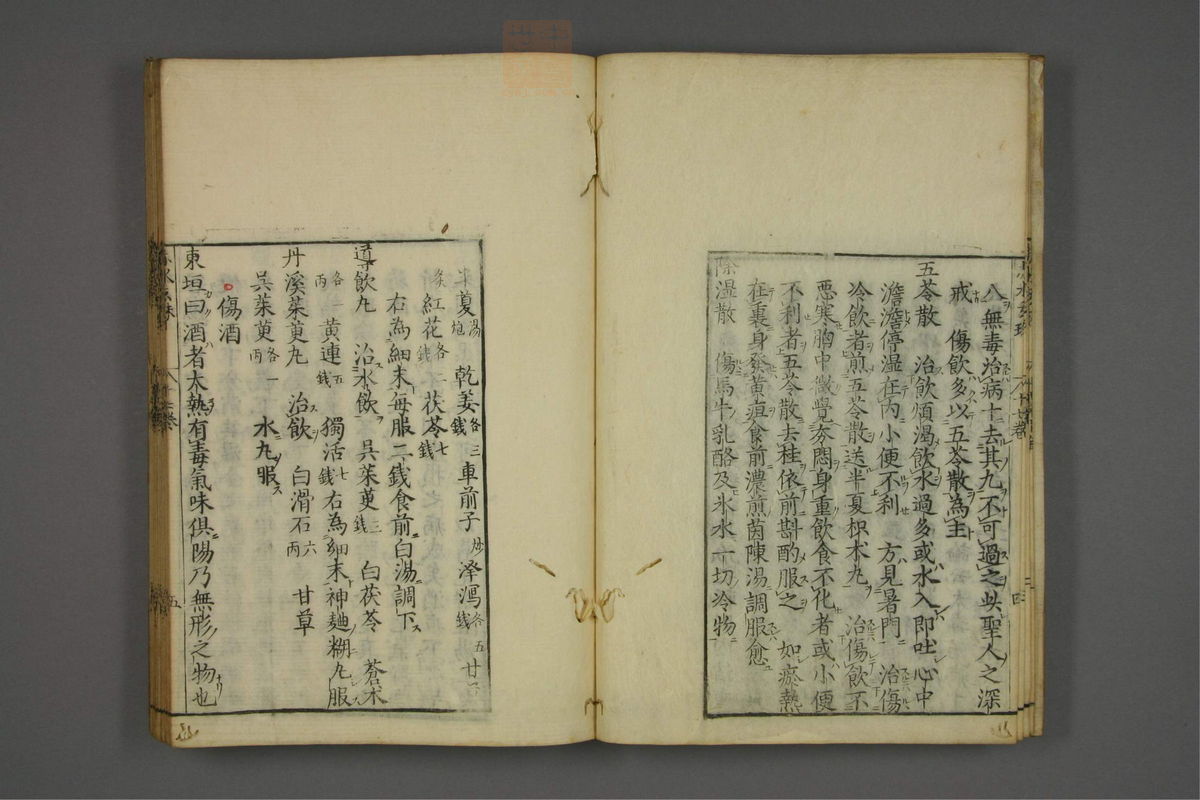 八無毒治病十去其九不可過之此聖人之深
戒　傷飲多以五苓散為主
五苓散　治飲煩渴飲水過多或水入即吐心中
澹澹停湿在內小便不利　方見暑門　治傷
冷飲者煎五苓散送半夏枳朮丸　治傷飲不
惡寒胸中微覺夯悶身重飲食不化者或小便
不利者五苓散去桂依前斟酌服之　如瘀熱
在裏身發黃疸食前濃煎茵陳湯調服愈
除湿散　傷馬牛乳酪及氷水一切冷物
半夏湯炮　乾姜各三錢　車前子炒　澤瀉各五錢　甘草
炙　紅花各一錢　茯苓七錢
右為細末每服二錢食前白湯調下
導飲丸　治水飲　吳茱萸三錢　白茯苓　蒼朮
各一兩　黃連五錢　獨活七錢　右為細末神麯糊丸服
丹溪茱萸丸　治飲　白滑石六兩　甘草
吳茱萸各一兩　水丸服
傷酒
東垣曰酒者太熱有毒氣味俱陽乃無形之物也
五